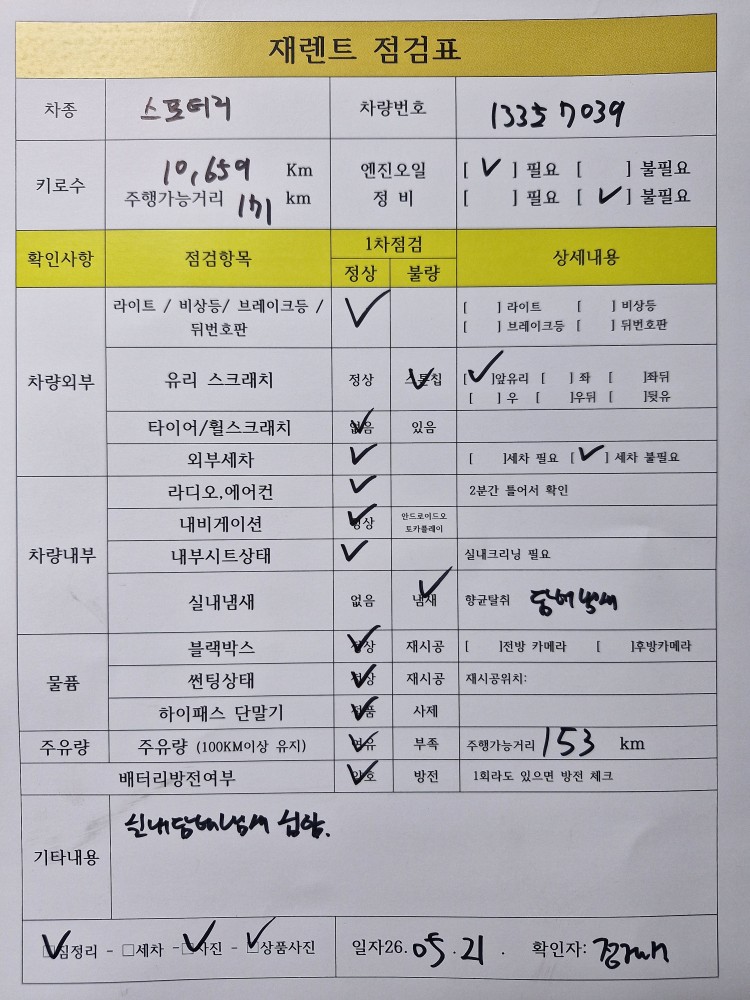 재렌트 점검표
차종 스포티지 차량번호 133호 7039
키로수 10,659 Km 엔진오일 [ ✓ ] 필요 [ ] 불필요
주행가능거리 171 km 정 비 [ ] 필요 [ ✓ ] 불필요
확인사항 점검항목 1차점검 상세내용
정상 불량
차량외부 라이트 / 비상등/ 브레이크등 / 뒤번호판 ✓ [ ] 라이트 [ ] 비상등
[ ] 브레이크등 [ ] 뒤번호판
유리 스크래치 정상 스톤칩 ✓ [ ✓ ]앞유리 [ ] 좌 [ ]좌뒤
[ ] 우 [ ]우뒤 [ ]뒷유
타이어/휠스크래치 없음 ✓ 있음
외부세차 ✓ [ ]세차 필요 [ ✓ ] 세차 불필요
차량내부 라디오,에어컨 ✓ 2분간 틀어서 확인
내비게이션 정상 ✓ 안드로이드오토카플레이
내부시트상태 ✓ 실내크리닝 필요
실내냄새 없음 냄새 ✓ 향균탈취 담배냄새
물품 블랙박스 정상 ✓ 재시공 [ ]전방 카메라 [ ]후방카메라
썬팅상태 정상 ✓ 재시공 재시공위치:
하이패스 단말기 정품 ✓ 사제
주유량 주유량 (100KM이상 유지) 여유 ✓ 부족 주행가능거리 153 km
배터리방전여부 양호 ✓ 방전 1회라도 있으면 방전 체크
기타내용 실내담배냄새 심함.
✓ □짐정리 - □세차 - ✓ □사진 - ✓ □상품사진 일자26. 05 . 21 . 확인자: